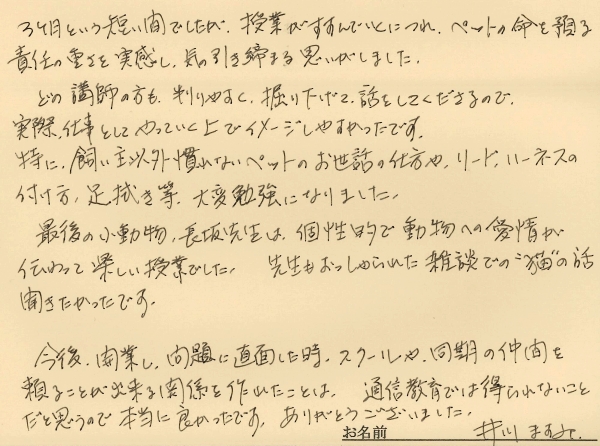 3ヶ月という短い間でしたが、授業がすすんでいくにつれ、ペットの命を預る
責任の重さを実感し、気の引き締まる思いがしました。
どの講師の方も、判りやすく、掘り下げて話をしてくださるので、
実際、仕事としてやっていく上でイメージしやすかったです。
特に、飼い主以外慣れないペットのお世話の仕方や、リード、ハーネスの
付け方、足拭き等、大変勉強になりました。
最後の小動物、長坂先生は、個性的で動物への愛情が
伝わって楽しい授業でした。 先生もおっしゃられた雑談での"猫"の話
聞きたかったです。
今後、開業し、問題に直面した時、スクールや、同期の仲間を
頼ることが出来る関係を作れたことは、 通信教育では得られないこと
だと思うので本当に良かったです。ありがとうございました。
お名前 井川 ますみ